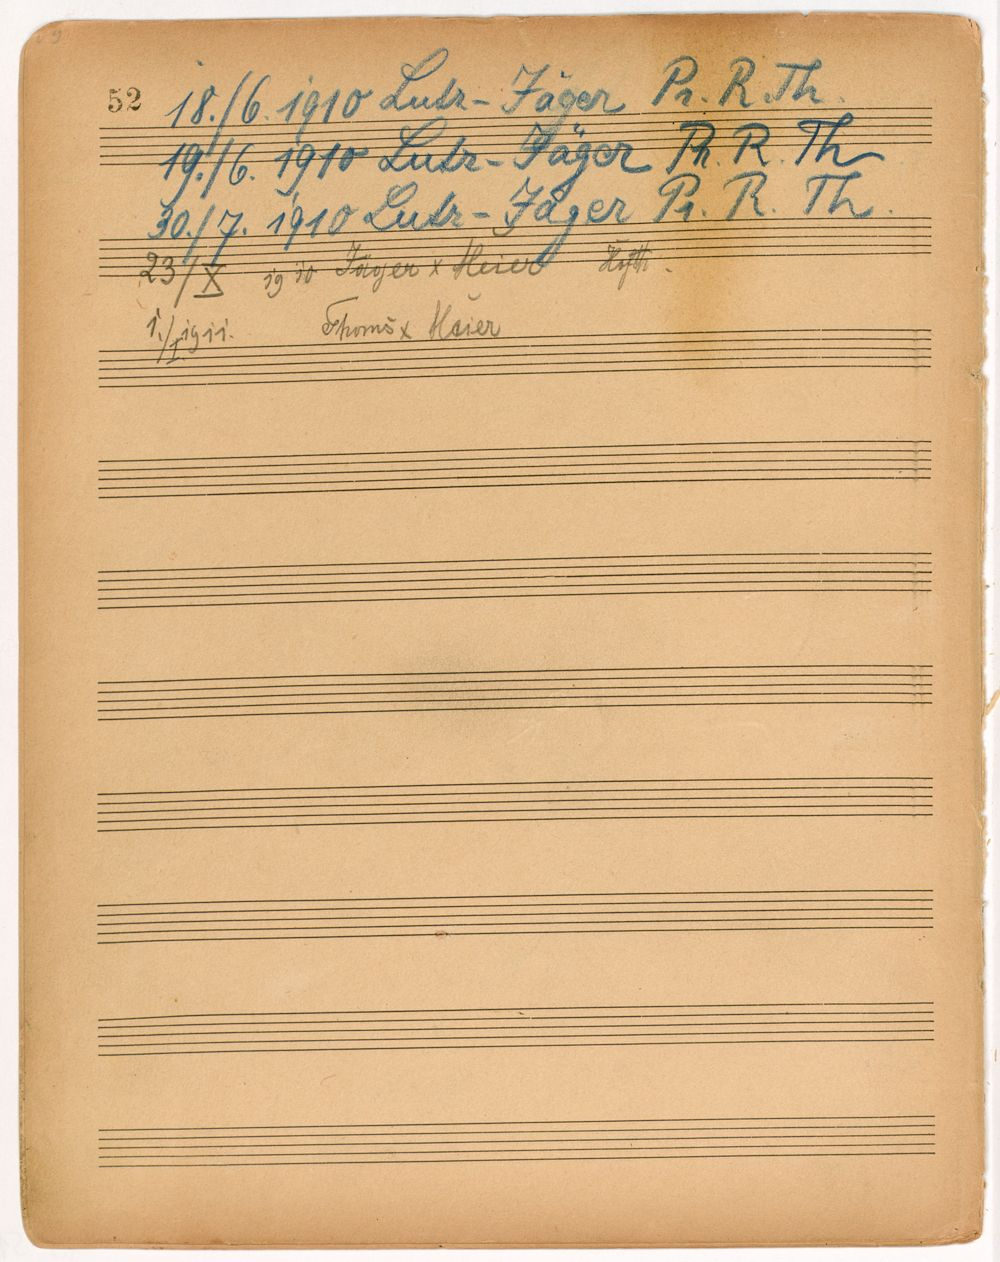 52
18./6. 1910 Lutz - Jäger Pr. R. Th.
19./6. 1910 Lutz - Jäger Pr. R. Th
30./7. 1910 Lutz - Jäger Pr. R. Th.
23/X 1910 Jäger x Meier Hofth.
1./I. 1911. Thoms x Meier